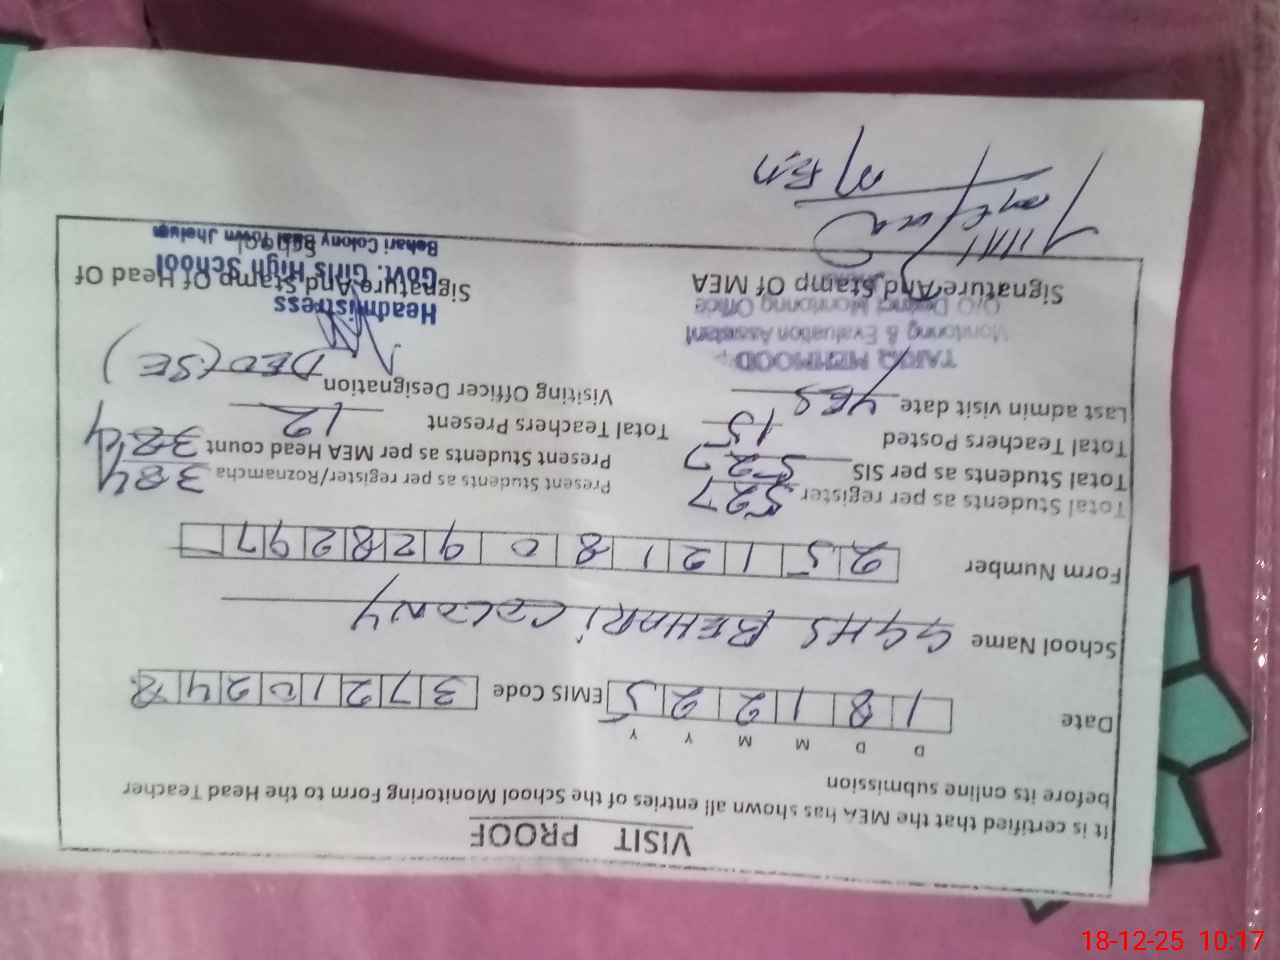 VISIT PROOF
It is certified that the MEA has shown all entries of the School Monitoring Form to the Head Teacher
before its online submission
D D M M Y Y
Date 1 8 1 2 2 5 EMIS Code 3 7 2 1 0 2 4 8
School Name GGHS BEHARI COLONY
Form Number 2 5 1 2 1 8 0 9 2 8 2 9 7
Total Students as per register 527 Present Students as per register/Roznamcha 384
Total Students as per SIS 527 Present Students as per MEA Head count 384
Total Teachers Posted 15 Total Teachers Present 12
Last admin visit date YES Visiting Officer Designation DEO (SE)
TARIQ MEHMOOD
Monitoring & Evaluation Assistant
O/O District Monitoring Office
Headmistress
Govt. Girls High School
Behari Colony Bilal Town Jhelum
Signature And Stamp Of MEA Signature And Stamp Of Head Of
School
18-12-25 10:17